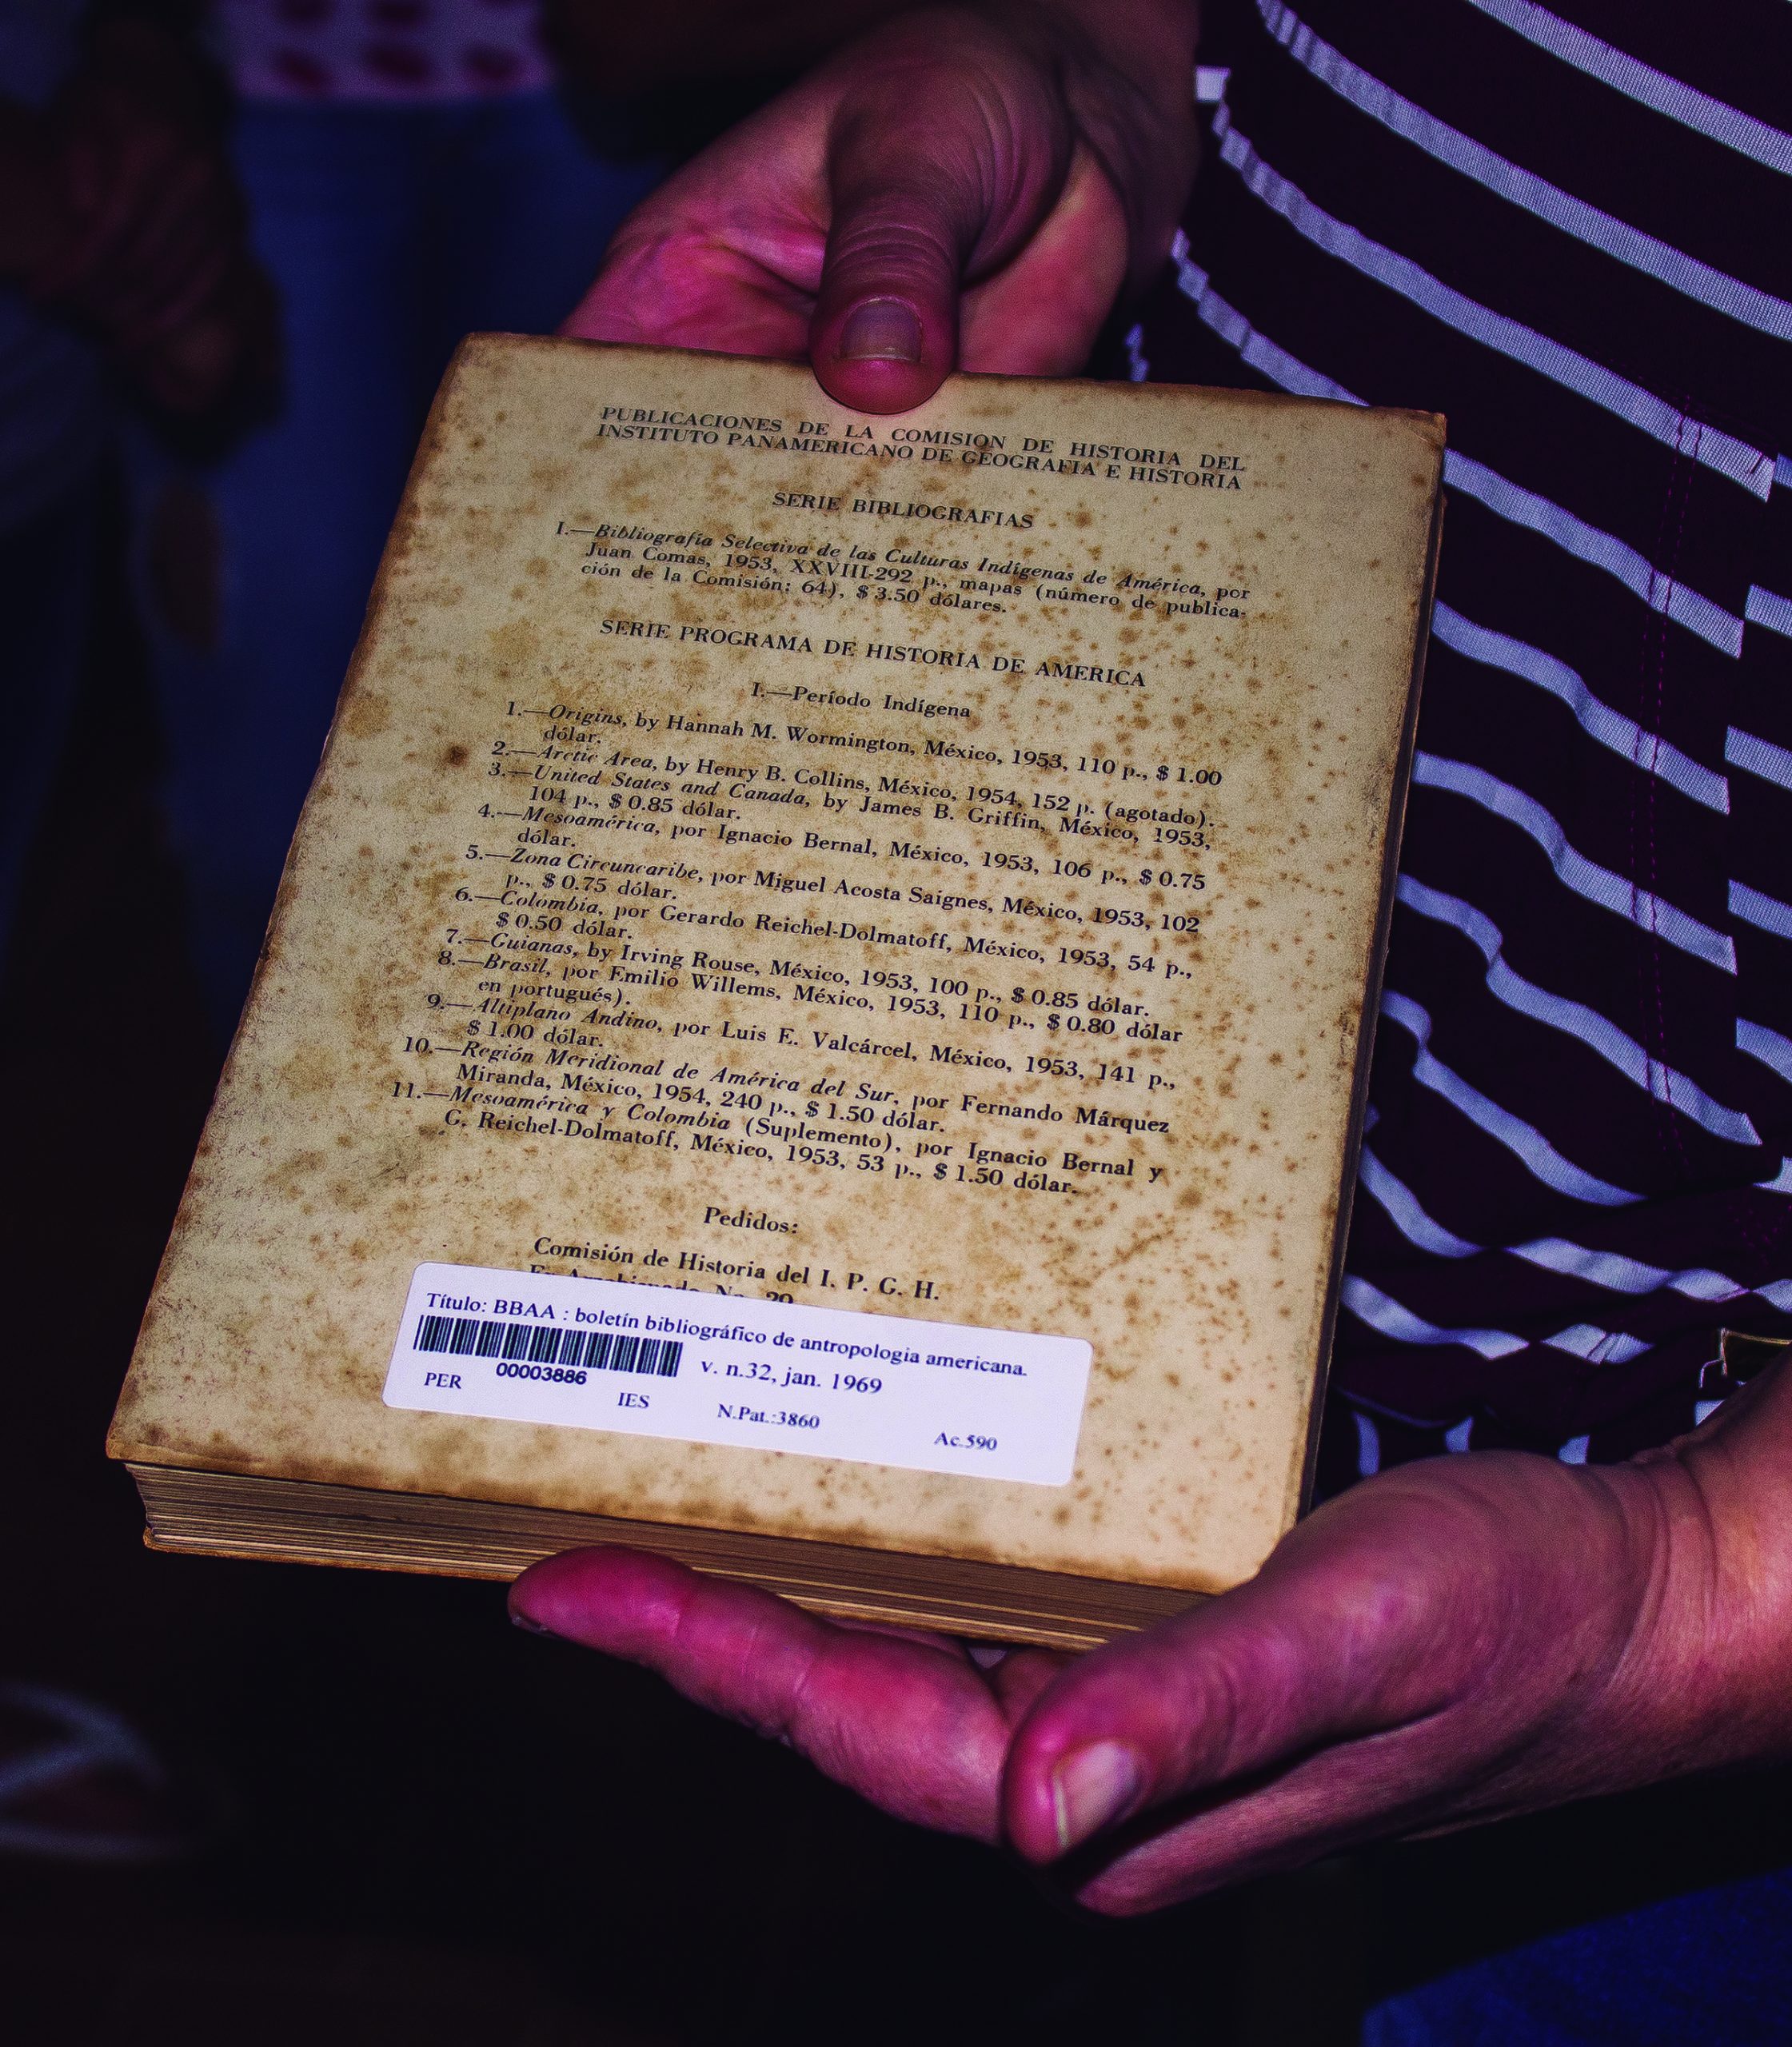 PUBLICACIONES DE LA COMISION DE HISTORIA DEL
INSTITUTO PANAMERICANO DE GEOGRAFIA E HISTORIA
SERIE BIBLIOGRAFIAS
I.—Bibliografía Selectiva de las Culturas Indígenas de América, por
Juan Comas, 1953, XXVIII-292 p., mapas (número de publica-
ción de la Comisión: 64), $ 3.50 dólares.
SERIE PROGRAMA DE HISTORIA DE AMERICA
I.—Período Indígena
1.—Origins, by Hannah M. Wormington, México, 1953, 110 p., $ 1.00
dólar.
2.—Arctic Area, by Henry B. Collins, México, 1954, 152 p. (agotado).
3.—United States and Canada, by James B. Griffin, México, 1953,
104 p., $ 0.85 dólar.
4.—Mesoamérica, por Ignacio Bernal, México, 1953, 106 p., $ 0.75
dólar.
5.—Zona Circuncaribe, por Miguel Acosta Saignes, México, 1953, 102
p., $ 0.75 dólar.
6.—Colombia, por Gerardo Reichel-Dolmatoff, México, 1953, 54 p.,
$ 0.50 dólar.
7.—Guianas, by Irving Rouse, México, 1953, 100 p., $ 0.85 dólar.
8.—Brasil, por Emilio Willems, México, 1953, 110 p., $ 0.80 dólar
en portugués).
9.—Altiplano Andino, por Luis E. Valcárcel, México, 1953, 141 p.,
$ 1.00 dólar.
10.—Región Meridional de América del Sur, por Fernando Márquez
Miranda, México, 1954, 240 p., $ 1.50 dólar.
11.—Mesoamérica y Colombia (Suplemento), por Ignacio Bernal y
G. Reichel-Dolmatoff, México, 1953, 53 p., $ 1.50 dólar.
Pedidos:
Comisión de Historia del I. P. G. H.
No. 29
Título: BBAA : boletín bibliográfico de antropologia americana.
00003886 v. n.32, jan. 1969
PER IES N.Pat.:3860 Ac.590